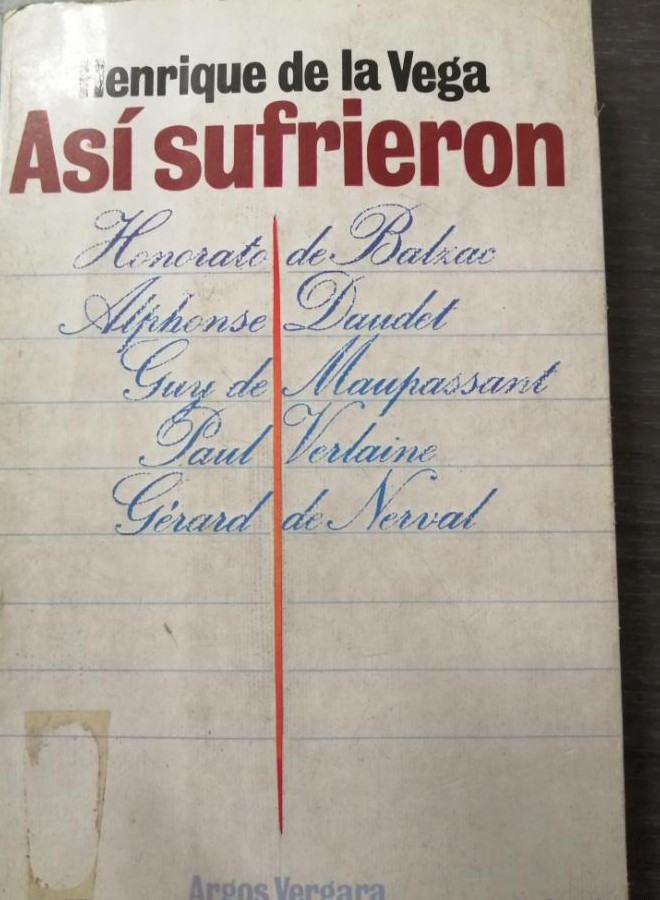 Henrique de la Vega
Así sufrieron
Honorato de Balzac
Alphonse Daudet
Guy de Maupassant
Paul Verlaine
Gérard de Nerval
Argos Vergara